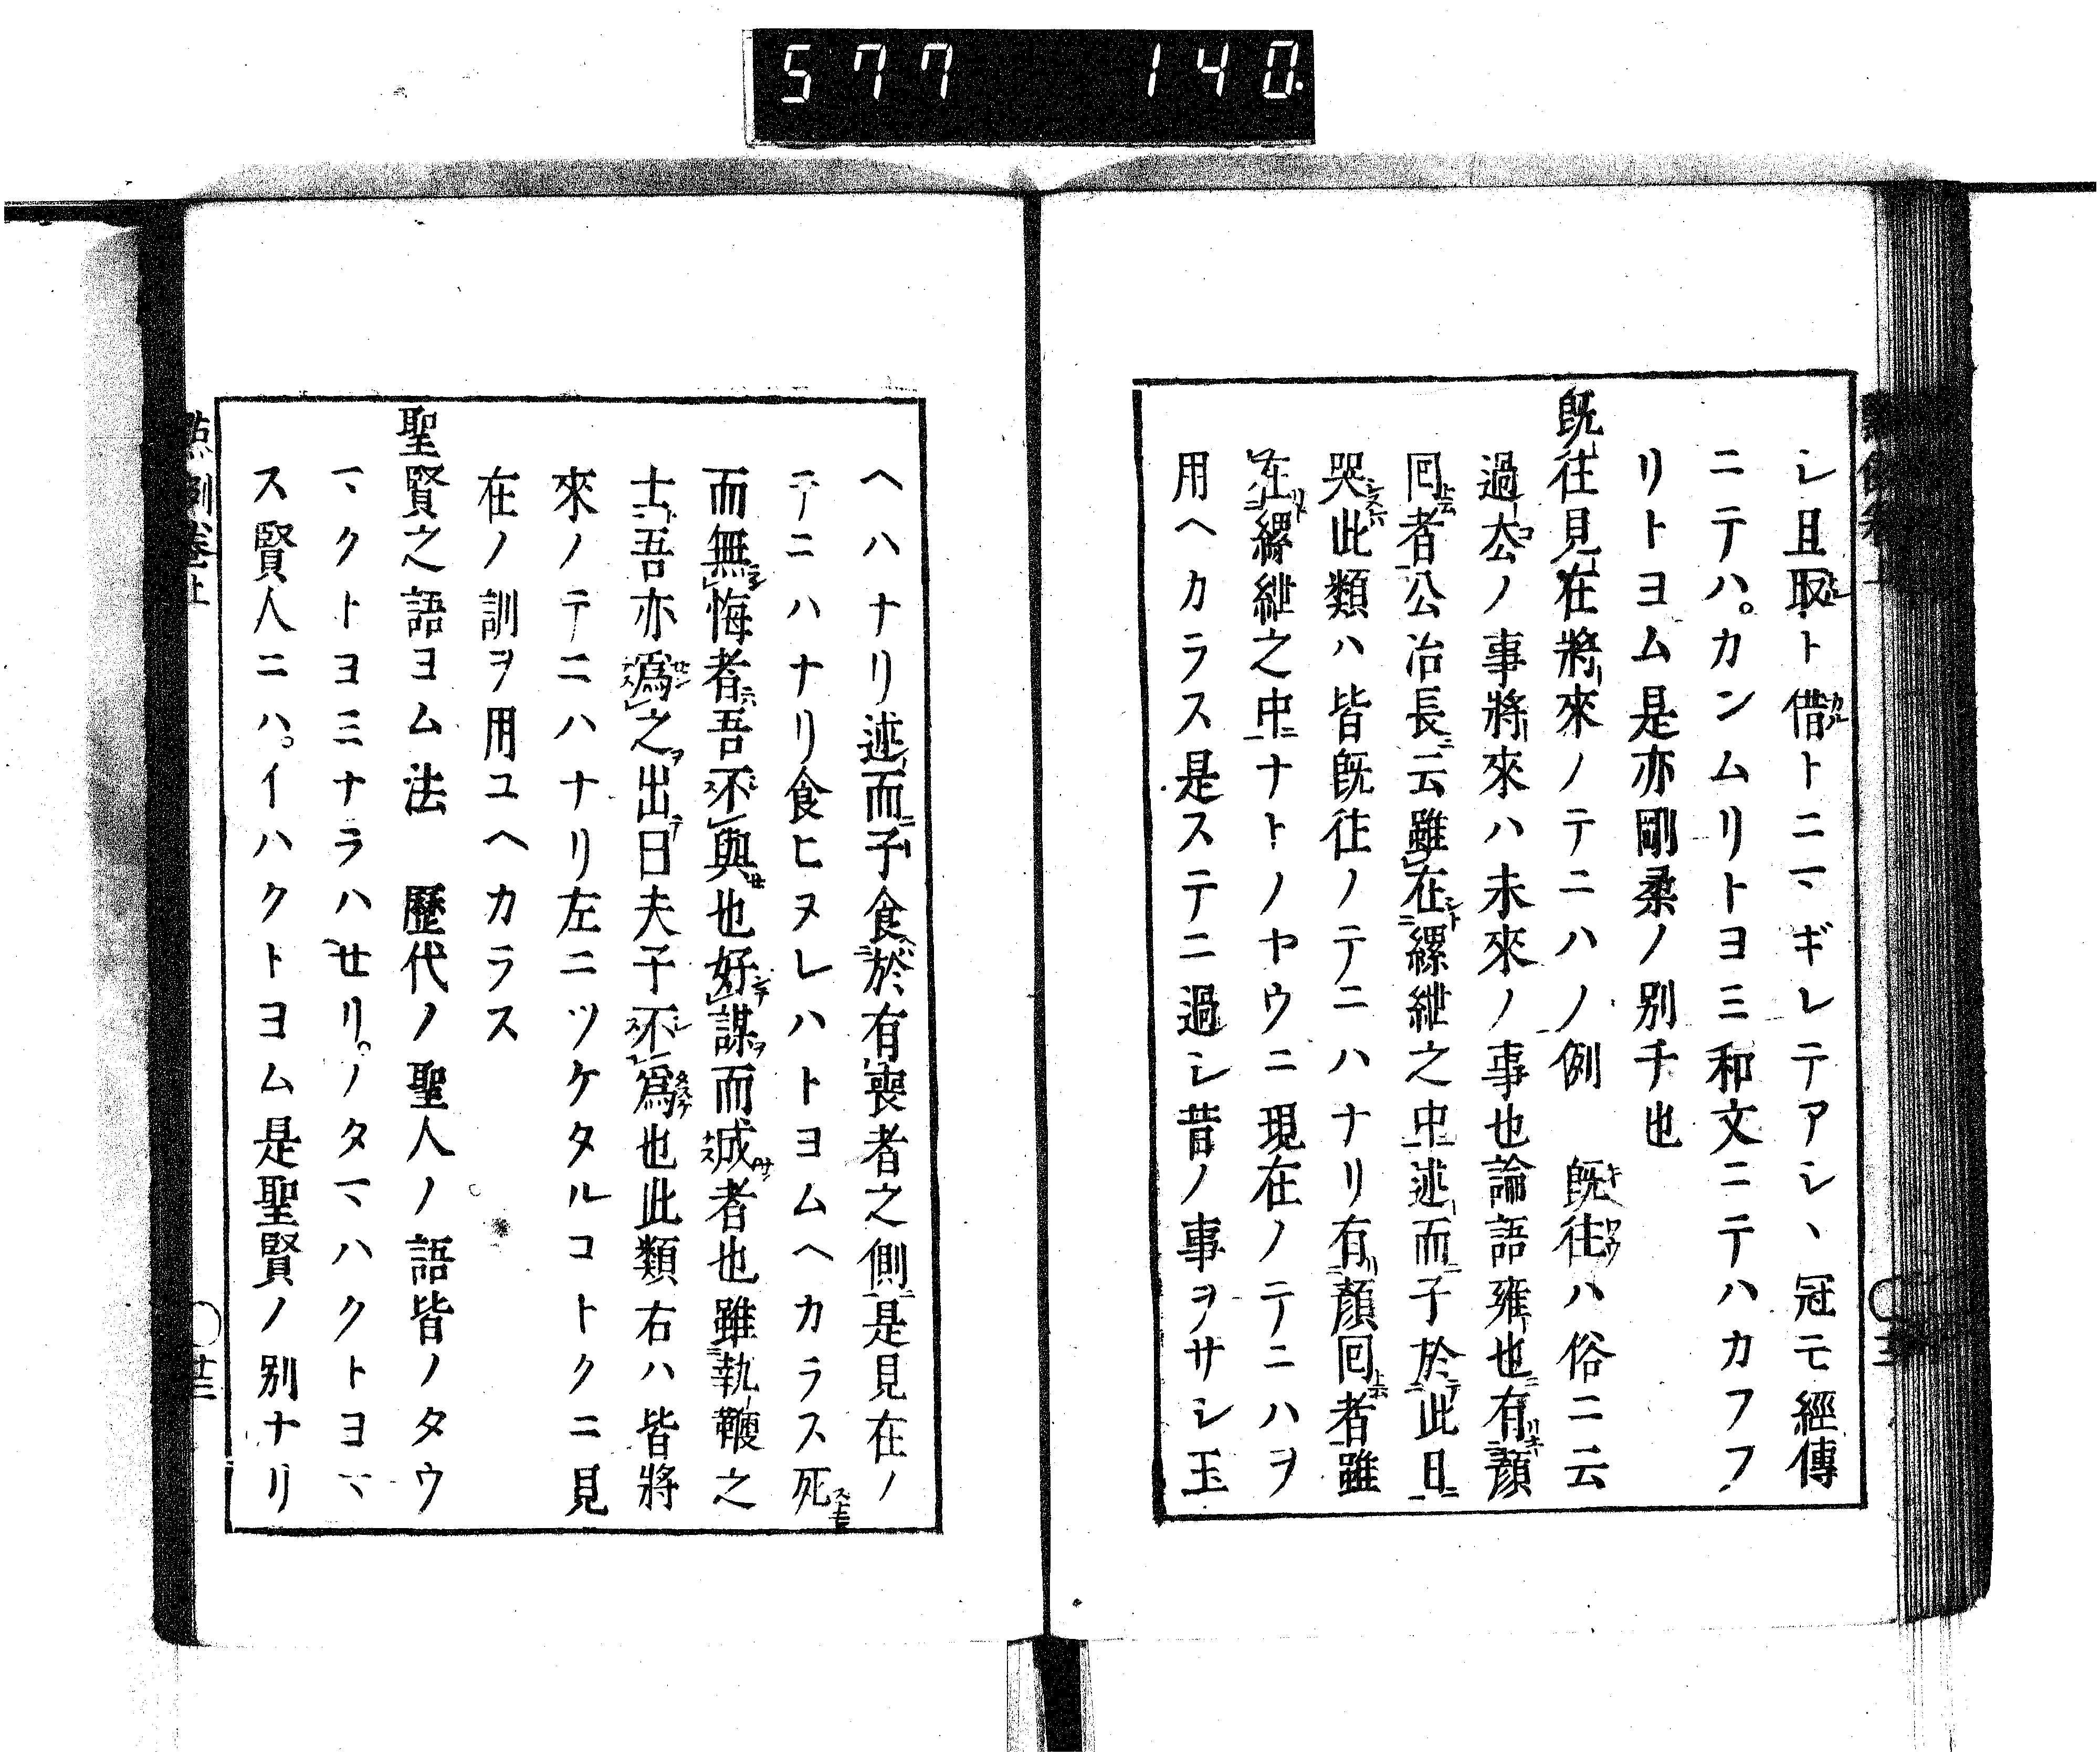 577 140
シ且取ト借トニマギレテアシヽ冠モ經傳
ニテハ。カンムリトヨミ和文ニテハカフフ
リトヨム是亦剛柔ノ別チ也
既往見在將來ノテニハノ例 既往ハ俗ニ云
過厺ノ事將來ハ未來ノ事也論語雍也有顔
回者公冶長云雖在縲紲之中述而子於此日
哭此類ハ皆既往ノテニハナリ有顏回者雖
在縲紲之中ナトノヤウニ現在ノテニハヲ
用ヘカラス是ステニ過シ昔ノ事ヲサシ玉
ヘハナリ述而子食於有喪者之側是見在ノ
テニハナリ食ヒヌレハトヨムヘカラス死
而無悔者吾不與也好謀而成者也雖執鞭之
士吾亦爲之出曰夫子不爲也此類右ハ皆將
來ノテニハナリ左ニツケタルコトクニ見
在ノ訓ヲ用ユヘカラス
聖賢之語ヨム法 歷代ノ聖人ノ語皆ノタウ
マクトヨミナラハセリ。ノタマハクトヨマ
ス賢人ニハ。イハクトヨム是聖賢ノ別ナリ
點例卷上
廿三